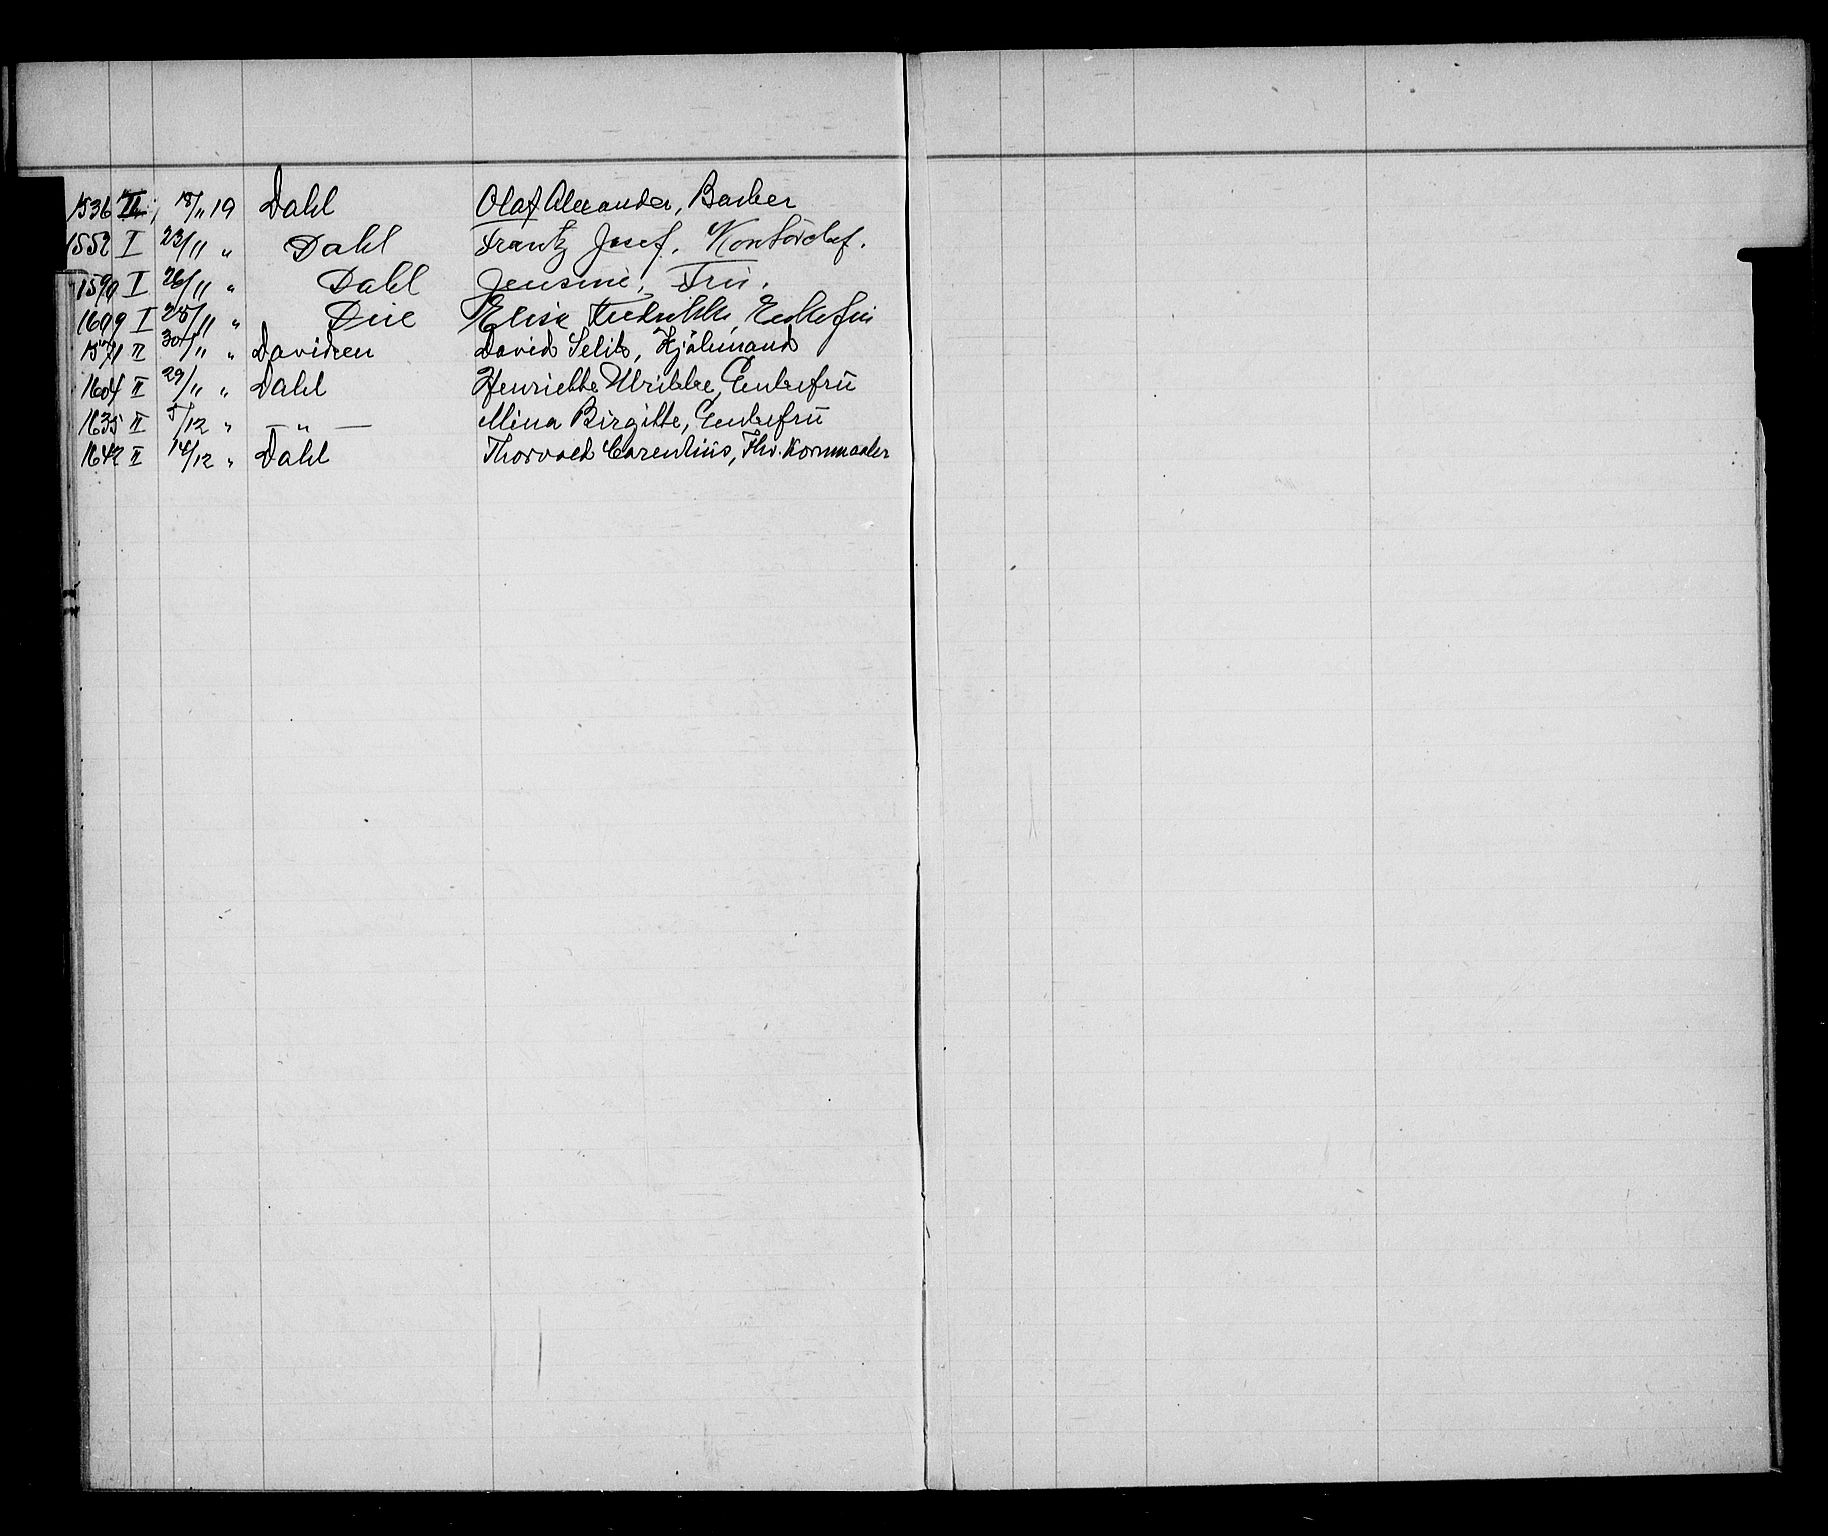 1536 II 18/11 19 Dahl Olaf Alexander, Barber
1552 I 23/11 " Dahl Frantz Josef. Kontorchef.
1590 I 26/11 " Dahl Jensine, Fru.
1609 I 28/11 " Due Elise Fredrikke, Enkefru
1571 II 30/11 " Davidsen David Selik, Hjälmand
1604 II 29/11 " Dahl Henriette Ulrikke, Enkefru
1635 II 5/12 " — " — Mina Birgitte, Enkefru
1642 II 14/12 " Dahl Thorvald Carentius, Fhv. Kornmaaler